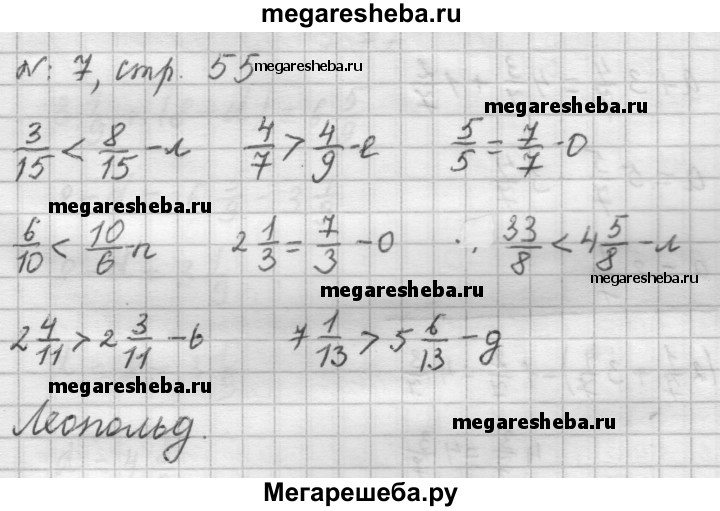 megaresheba.ru
№: 7, стр. 55 megaresheba.ru
megaresheba.ru
3/15 < 8/15 - л 4/7 > 4/9 - е 5/5 = 7/7 - о
megaresheba.ru
6/10 < 10/6 - п 2 1/3 = 7/3 - о 33/8 < 4 5/8 - л
megaresheba.ru megaresheba.ru
2 4/11 > 2 3/11 - ь 7 1/13 > 5 6/13 - д
megaresheba.ru
Леопольд. megaresheba.ru
Мегарешеба.ру